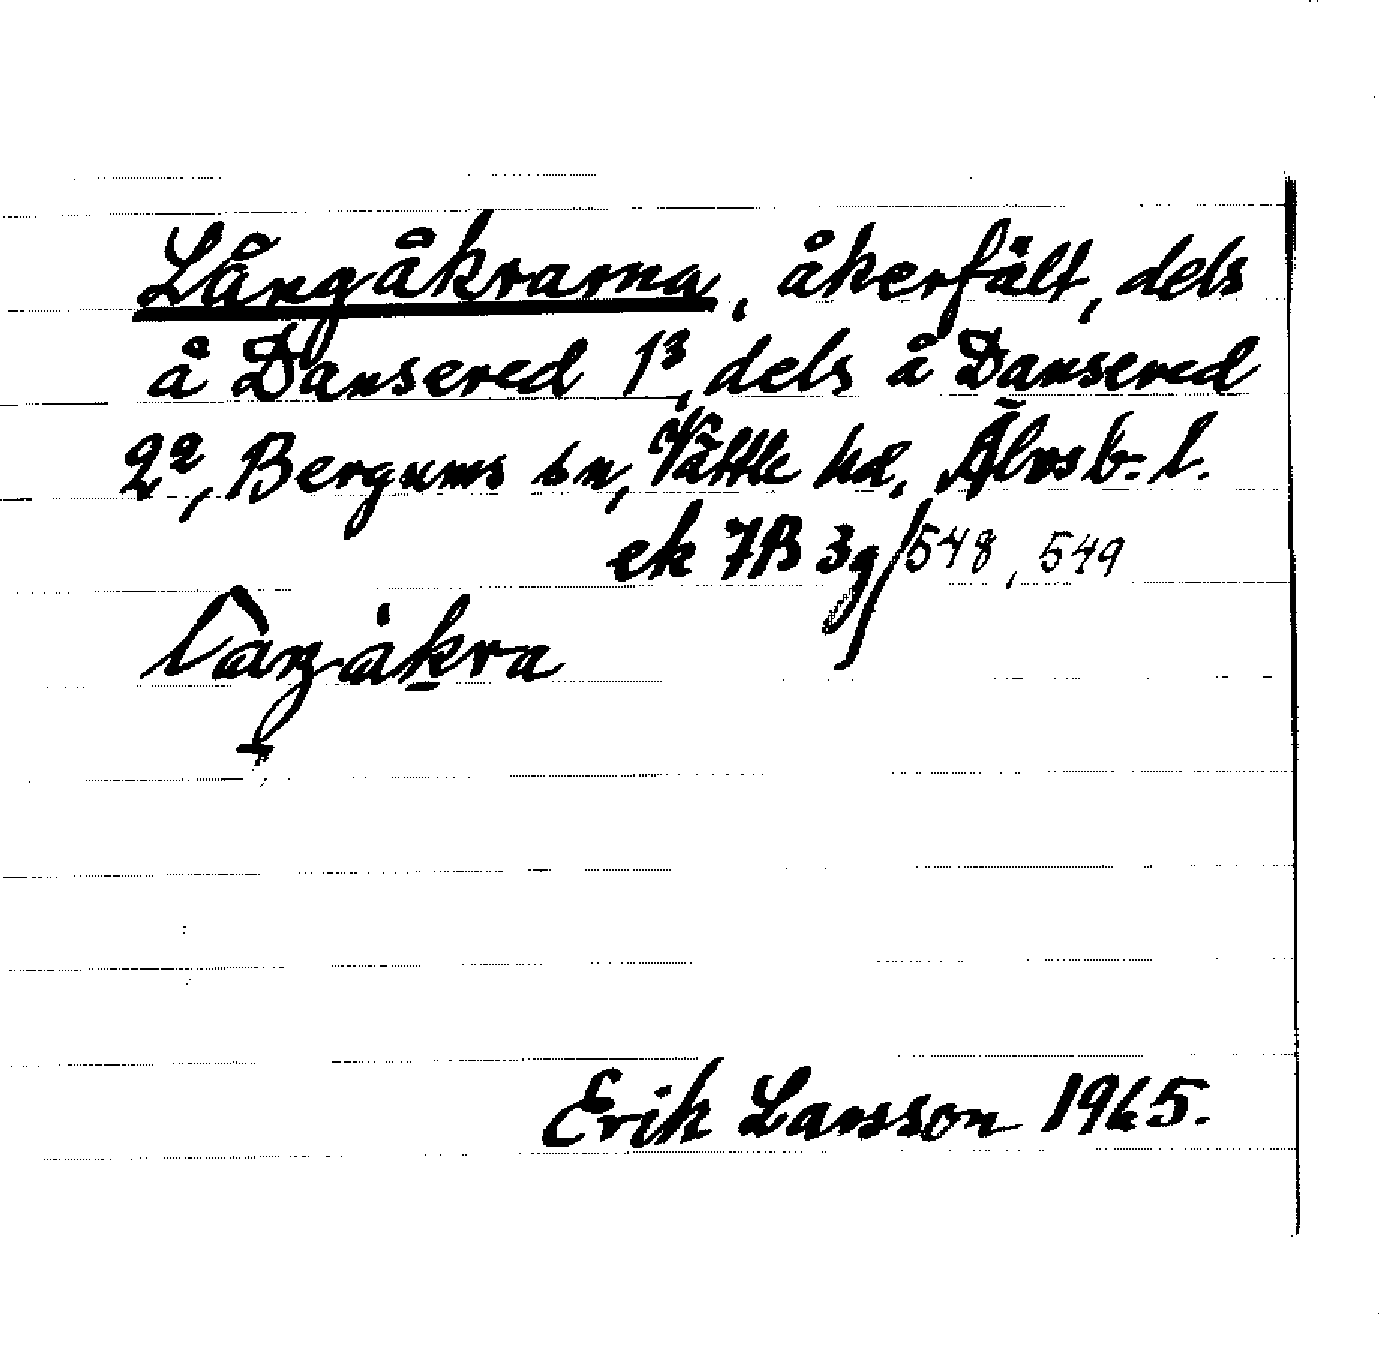 Långåkrarna, åkerfält, dels
å Dansered 1³, dels å Dansered
2², Bergums sn, Vättle hd, Älvsb. l.
ek 7B 3g/548, 549
Erik Larsson 1965.